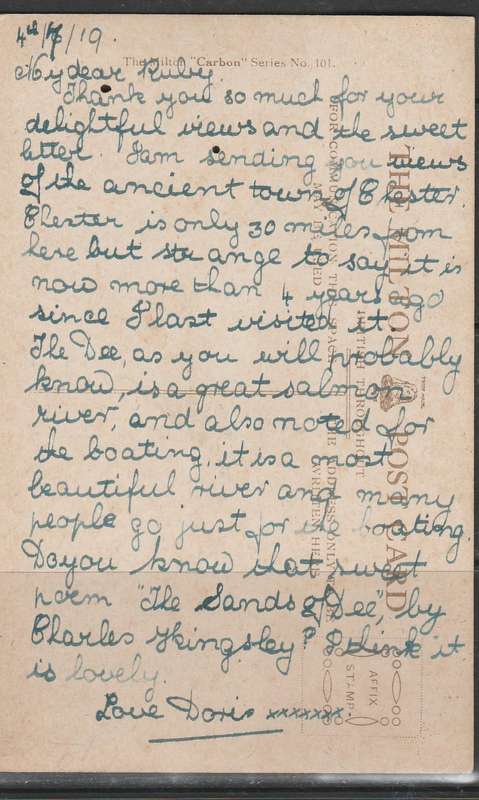 4th/7/19.
The Milton "Carbon" Series No. 101.
My dear Ruby.
Thank you so much for your
delightful views and the sweet
letter. I am sending you views
of the ancient town of Chester.
Chester is only 30 miles from
here but strange to say it is
now more than 4 years ago
since I last visited it.
The Dee, as you will probably
know, is a great salmon
river, and also noted for
the boating, it is a most
beautiful river and many
people go just for the boating.
Do you know that sweet
poem "The Sands of Dee", by
Charles Kingsley? I think it
is lovely.
Love Doris xxxxxxx
THE MILTON POST CARD
FOR COMMUNICATION THIS SPACE
MAY BE USED
BRITISH THROUGHOUT
THE ADDRESS ONLY TO BE
WRITTEN HERE
TRADE MARK
AFFIX
STAMP